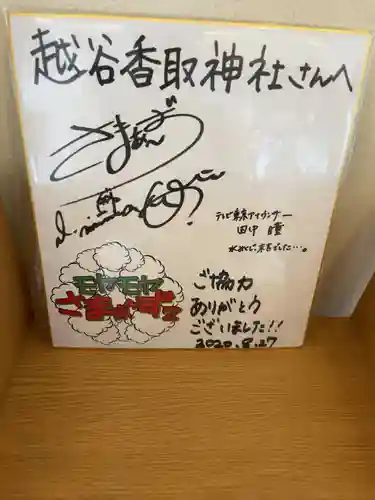 越谷香取神社さんへ
さまぁ〜ず
テレビ東京アナウンサー
田中 瞳
モヤモヤ
さまぁ〜ず2
ご協力
ありがとう
ございました!!
2020.8.27